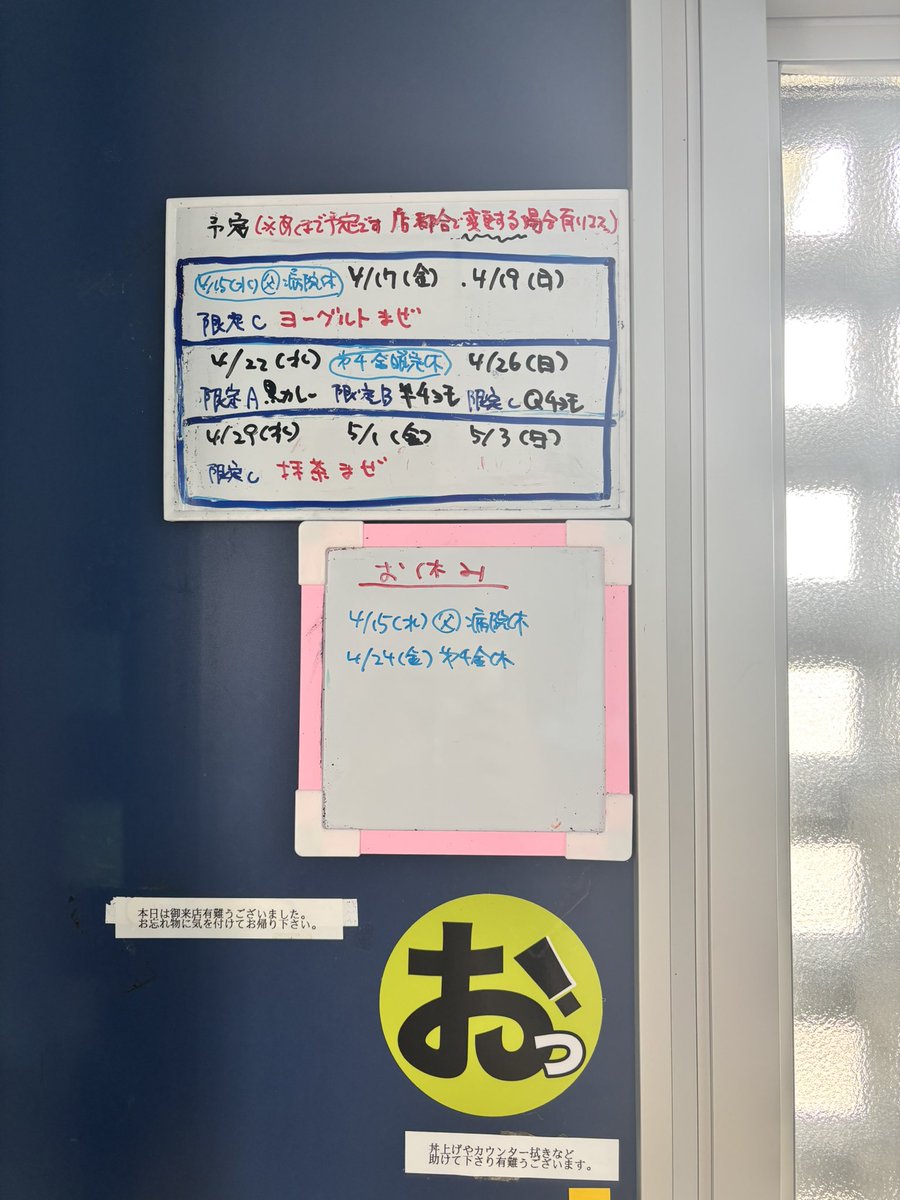 予定(※あくまで予定です 店都合で変更する場合有ります)
4/15(水)父病院休 4/17(金) .4/19(日)
限定C ヨーグルトまぜ
4/22(水) 第4金曜定休 4/26(日)
限定A 黒カレー 限定B キチヨモ 限定C Qチヨモ
4/29(水) 5/1(金) 5/3(日)
限定C 抹茶まぜ
お休み
4/15(水)父病院休
4/24(金)第4金休
本日は御来店有難うございました。
お忘れ物に気を付けてお帰り下さい。
おっ!
丼上げやカウンター拭きなど
助けて下さり有難うございます。